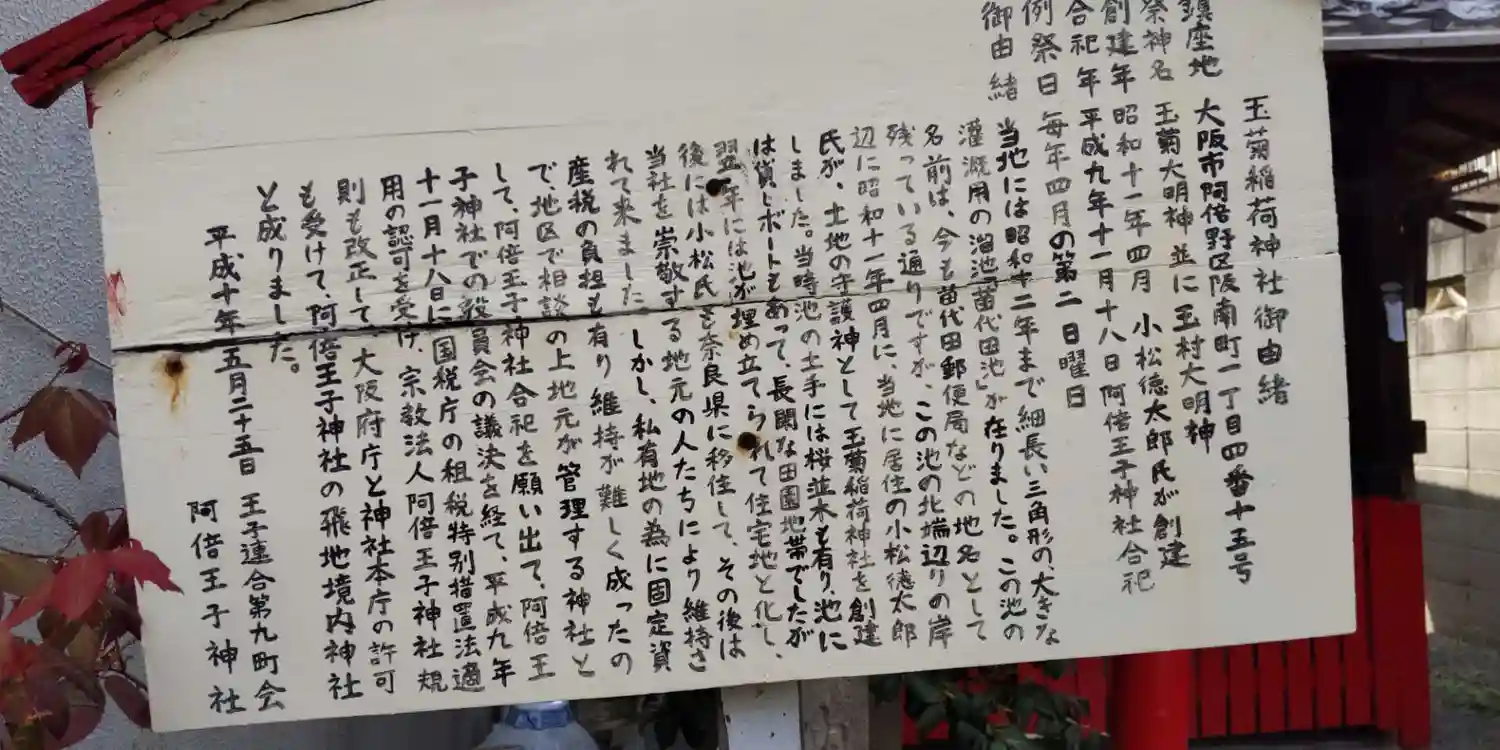 玉菊稲荷神社御由緒
鎮座地 大阪市阿倍野区阪南町一丁目四番十五号
祭神名 玉菊大明神 並に 玉村大明神
創建年 昭和十一年四月 小松徳太郎氏が創建
合祀年 平成九年十一月十八日阿倍王子神社合祀
例祭日 毎年四月の第二日曜日
御由緒 当地には昭和十二年まで細長い三角形の、大きな
灌漑用の溜池「苗代田池」が在りました。この池の
名前は、今も苗代田郵便局などの地名として
残っている通りですが、この池の北端辺りの岸
辺に昭和十一年四月に、当地に居住の小松徳太郎
氏が、土地の守護神として玉菊稲荷神社を創建
しました。当時池の土手には桜並木も有り、池に
は貸しボートもあって、長閑な田園地帯でしたが
翌年には池が埋め立てられて住宅地と化し、
後には小松氏も奈良県に移住して、その後は
当社を崇敬する地元の人たちにより維持さ
れて来ました。しかし、私有地の為に固定資
産税の負担も有り維持が難しく成ったの
で、地区で相談の上地元が管理する神社と
して、阿倍王子神社合祀を願い出て、阿倍王
子神社での役員会の議決を経て、平成九年
十一月十八日に国税庁の租税特別措置法適
用の認可を受け、宗教法人阿倍王子神社規
則も改正して、大阪府庁と神社本庁の許可
も受けて、阿倍王子神社の飛地境内神社
と成りました。
平成十年五月二十五日 王子連合第九町会
阿倍王子神社